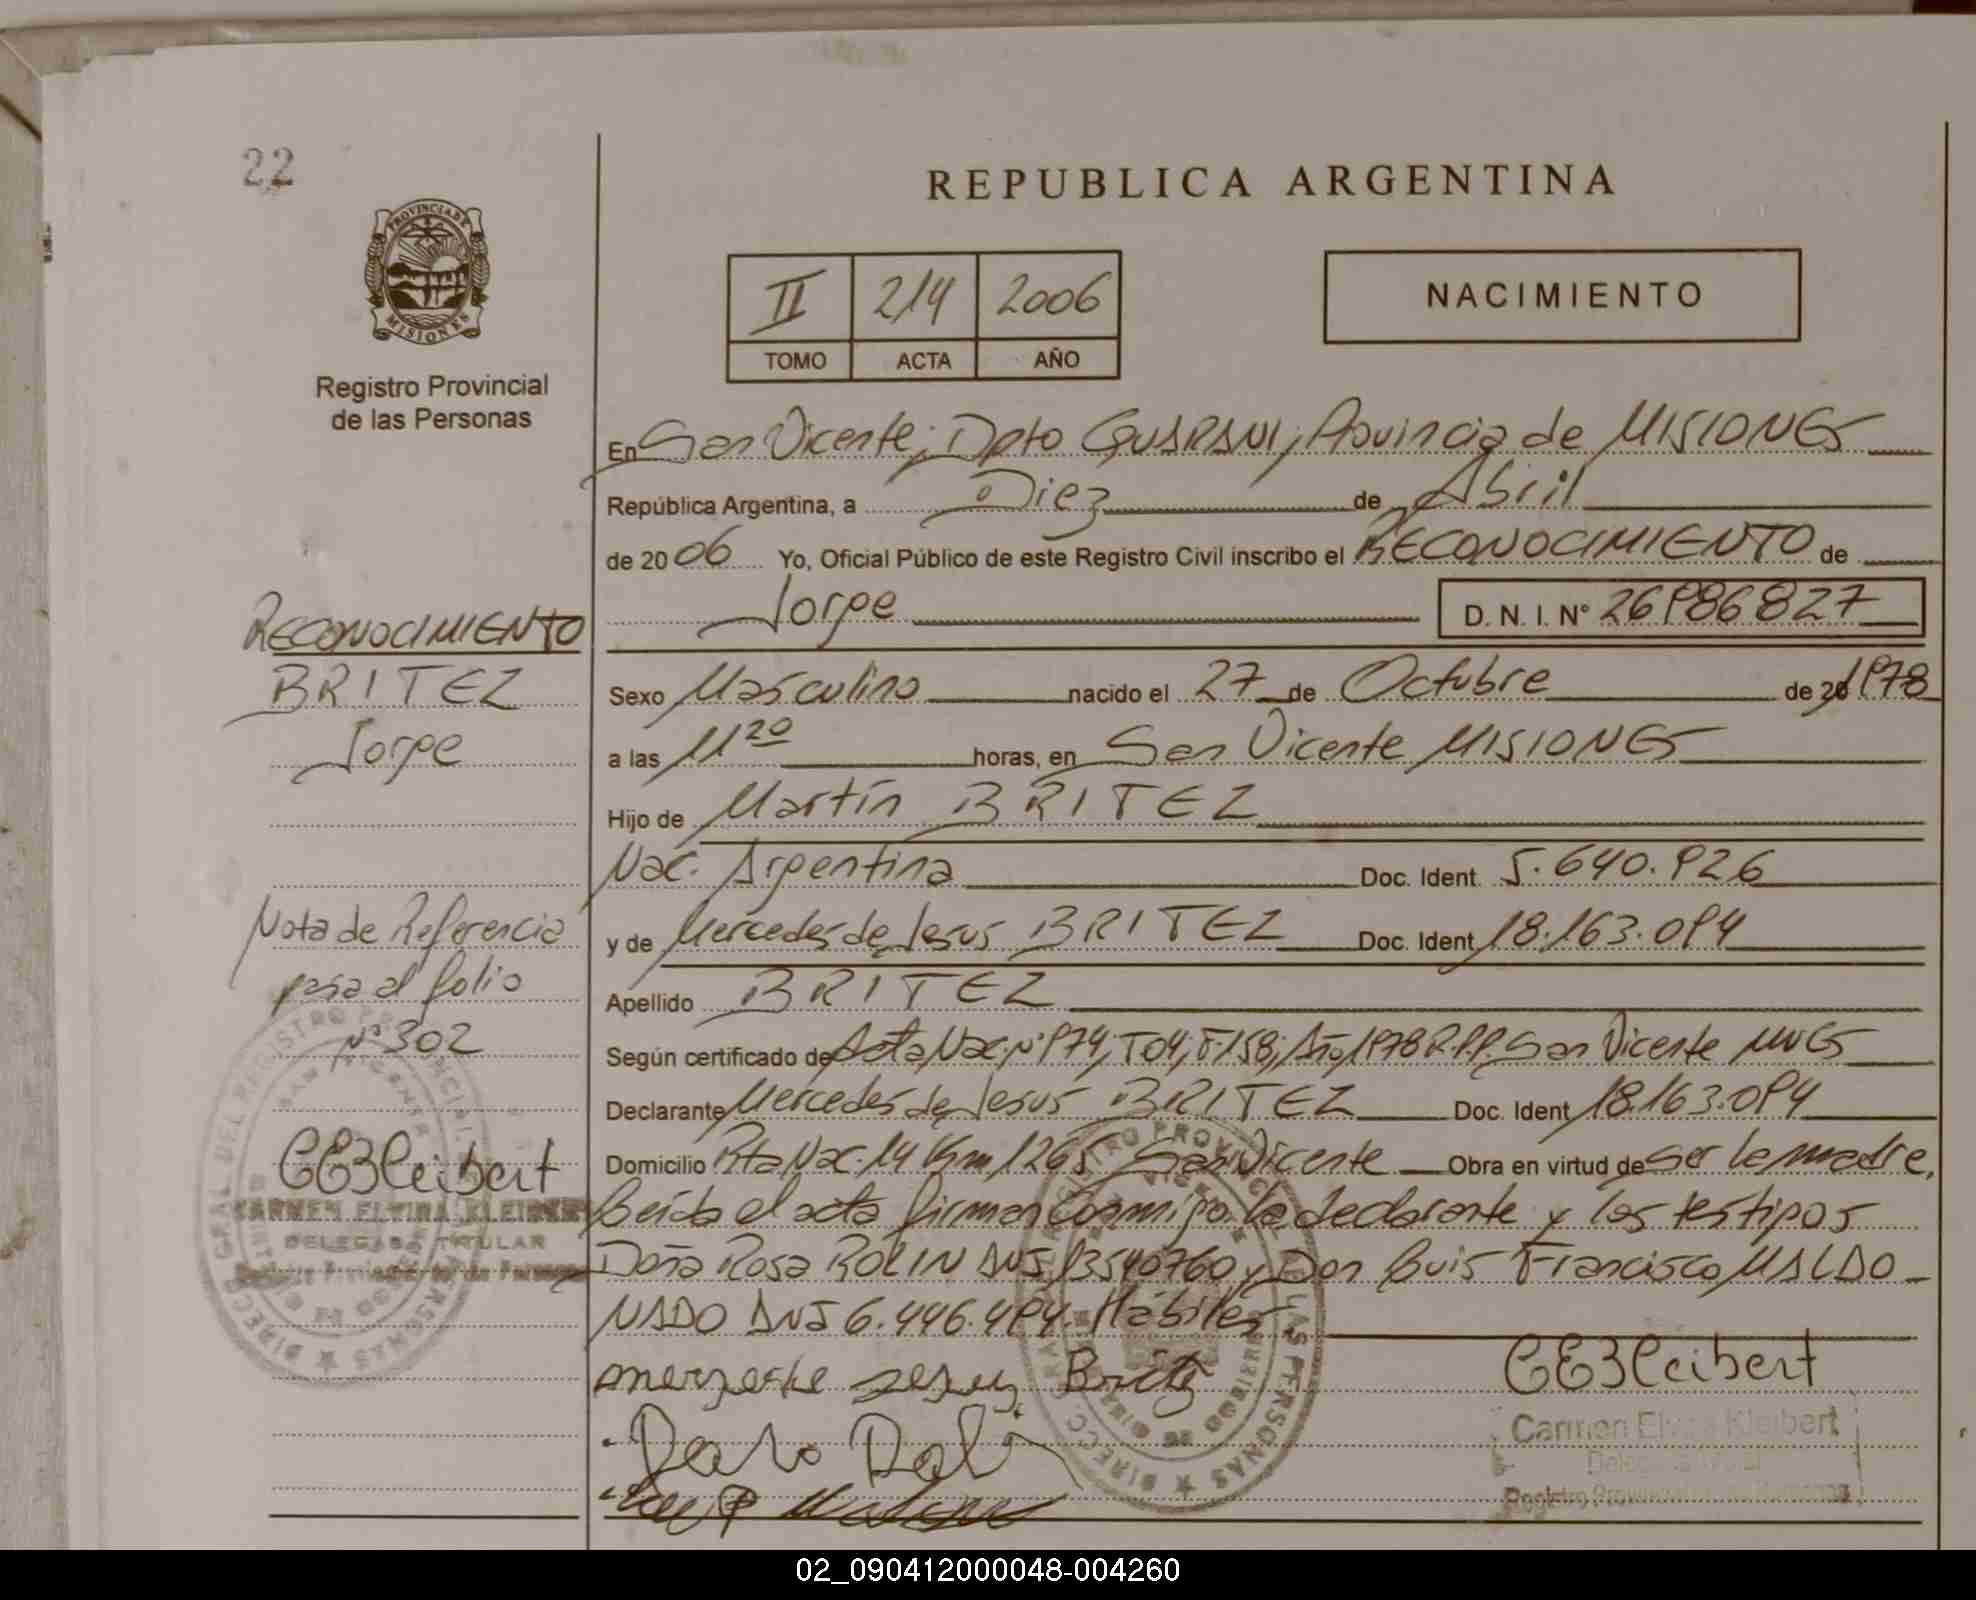 22
REPUBLICA ARGENTINA
PROVINCIA DE
MISIONES
Registro Provincial
de las Personas
II 214 2006
TOMO ACTA AÑO
NACIMIENTO
En San Vicente; Dpto GUARANI, Provincia de MISIONES
República Argentina, a Diez de Abril
de 2006 Yo, Oficial Público de este Registro Civil inscribo el RECONOCIMIENTO de
Jorge D. N. I. N° 26986827
RECONOCIMIENTO
BRITEZ
Jorge
Sexo Masculino nacido el 27 de Octubre de 20 1978
a las 11 20 horas, en San Vicente MISIONES
Hijo de Martín BRITEZ
Nac. Argentina Doc. Ident. 5.640.926
y de Mercedes de Jesus BRITEZ Doc. Ident 18.163.094
Apellido BRITEZ
Según certificado de Acta Nac. N° 974, T04, F.158, Año 1978 R.P.P. San Vicente MNES
Declarante Mercedes de Jesus BRITEZ Doc. Ident 18.163.094
Domicilio Rta Nac. 14 Km 1265 San Vicente Obra en virtud de Ser la madre,
Leída el acta firman conmigo la declarante y los testigos
Doña Rosa ROLIN DNI 13540760 y Don Luis Francisco MALDO-
NADO DNI 6.446.494. Hábiles
Nota de Referencia
pasa al folio
N° 302
CEKleibert
CARMEN ELVIRA KLEIBERT
DELEGADA TITULAR
CEKleibert
Carmen Elvira Kleibert
Registro Provincial
02_090412000048-004260